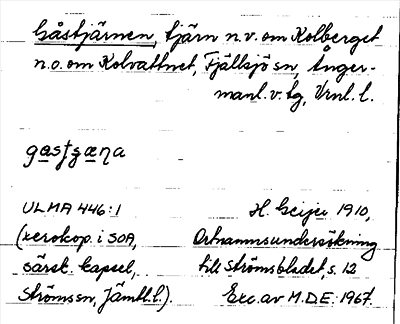 Gåstjärnen, tjärn n.v. om Kolberget
n.o. om Kolvattnet, Fjällsjö sn, Ånger-
manl. v. tg, Vrnl. l.
ULMA 446:1 H. Geijer 1910,
(xerokop. i SOA, Ortnamnsundersökning
särsk. kapsel, till Strömsbladet, s. 12
Ströms sn, Jämtl. l.). Exc. av M.D.E. 1967.